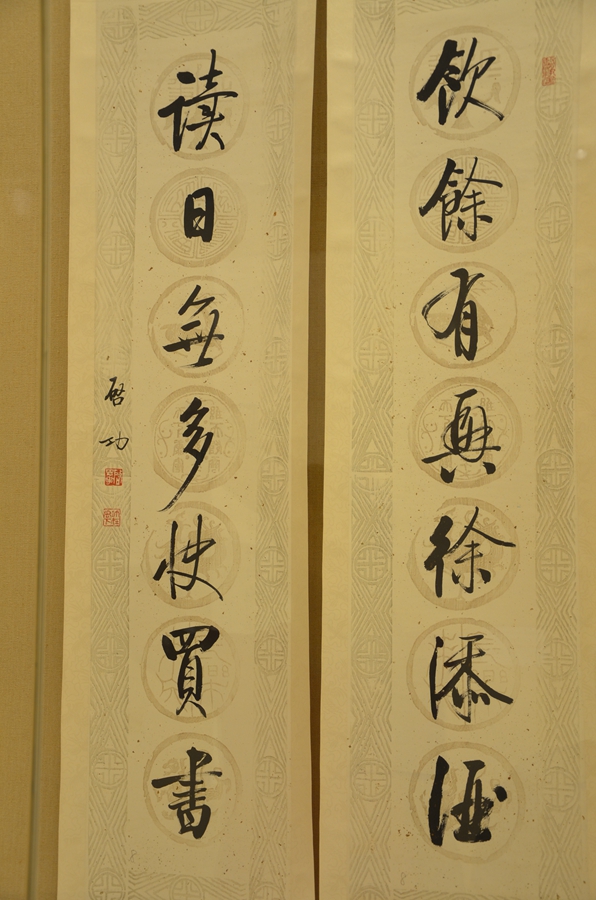 飲餘有興徐添酒
读日無多快買書
啓功